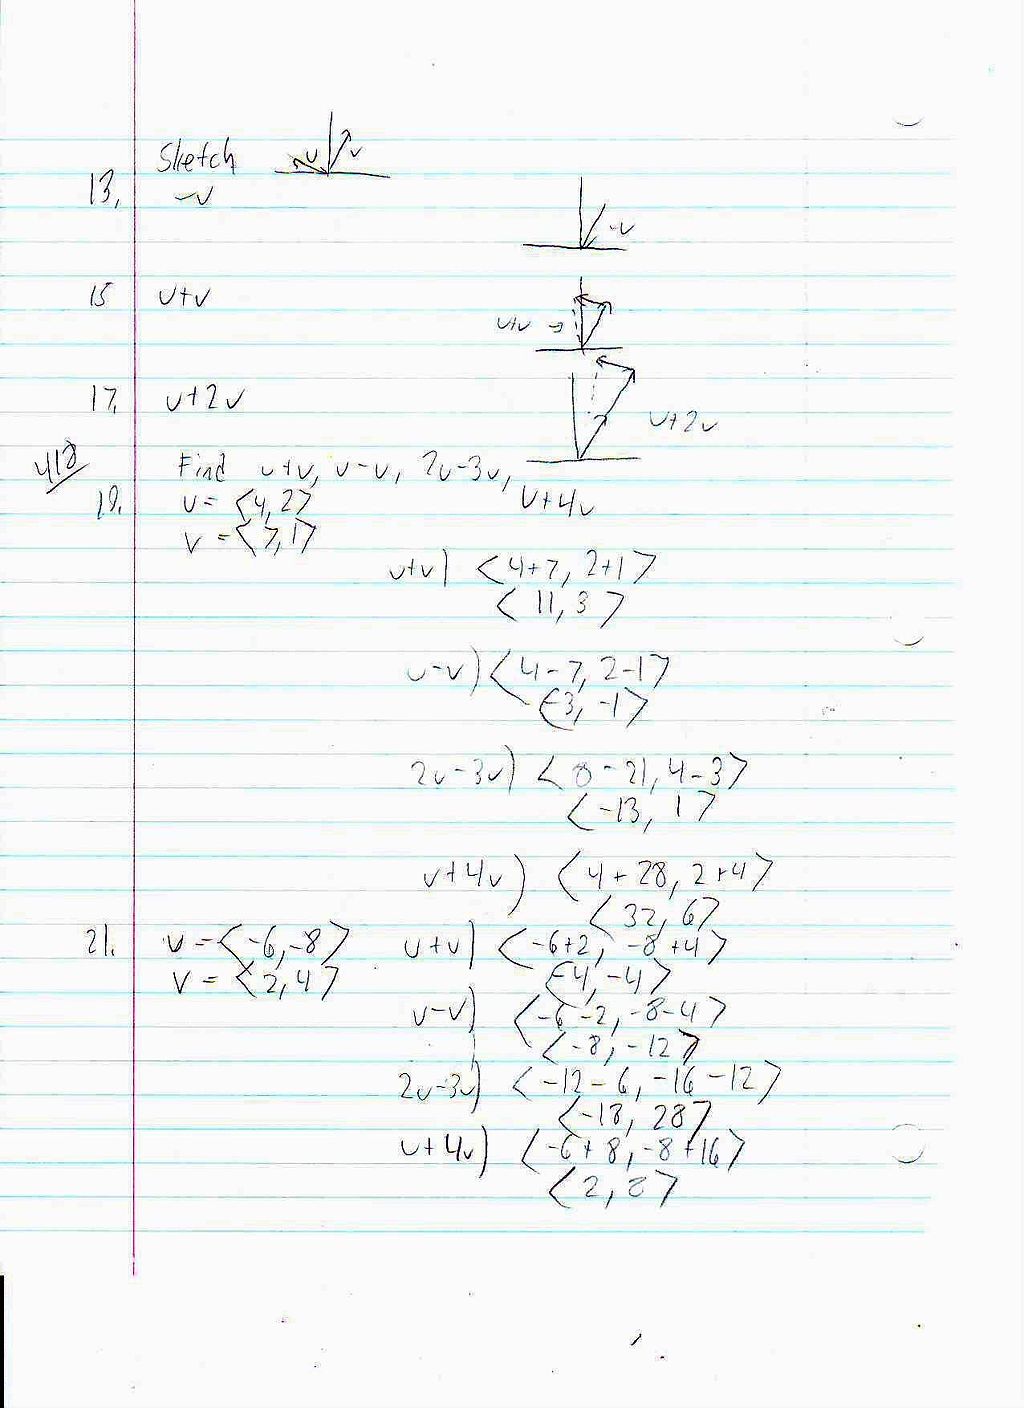 Sketch
u v
13. -v
-v
15 u+v
u+v →
17. u+2v
u+2v
418
Find u+v, u-v, 2u-3v,
u+4v
19. u = <4, 2>
v = <7, 1>
u+v) <4+7, 2+1>
<11, 3>
u-v) <4-7, 2-1>
<-3, -1>
2u-3v) <8-21, 4-3>
<-13, 1>
u+4v) <4+28, 2+4>
<32, 6>
21. u = <-6, -8> u+v) <-6+2, -8+4>
v = <2, 4> <-4, -4>
u-v) <-6-2, -8-4>
<-8, -12>
2u-3v) <-12-6, -16-12>
<-18, 28>
u+4v) <-6+8, -8+16>
<2, 8>